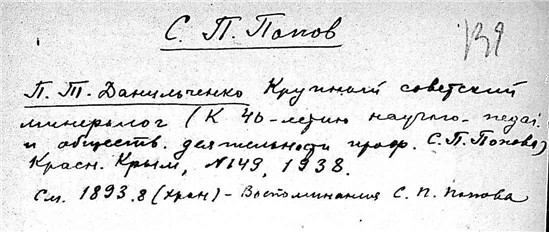 С. П. Попов
139
П. Т. Данильченко Крупный советский
минеролог (К 40-летию научно-педаг.
и обществ. деятельности проф. С. П. Попова)
Красн. Крым, №149, 1938.
См. 1893.8 (хран) - Воспоминания С. П. Попова